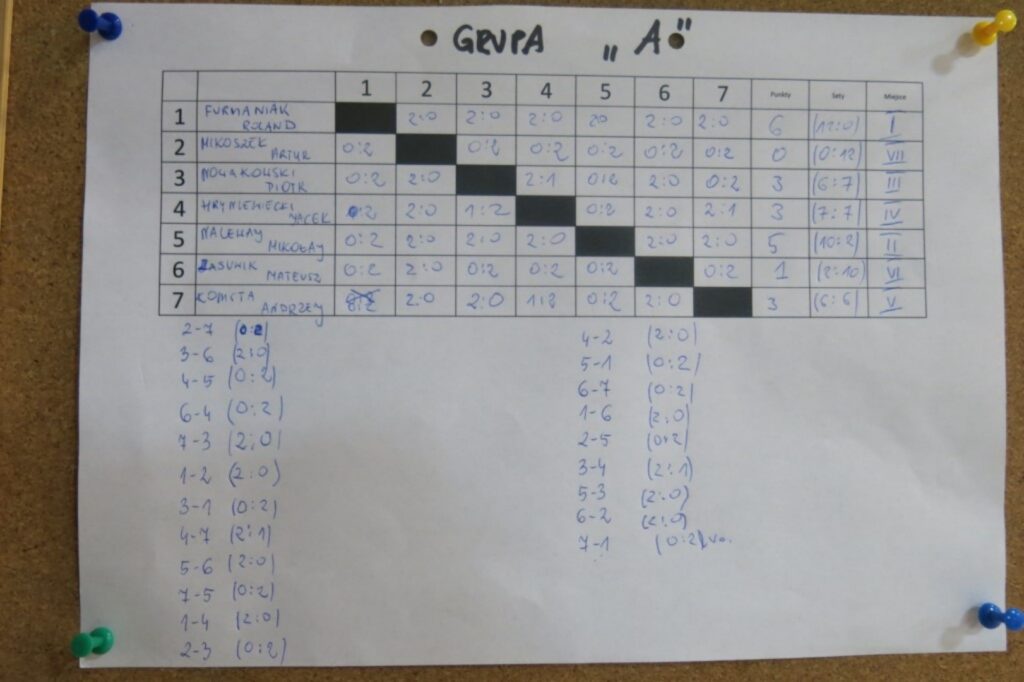 GRUPA „A"
1 2 3 4 5 6 7 Punkty Sety Miejsce
1 FURMANIAK ROLAND 2:0 2:0 2:0 20 2:0 2:0 6 (12:0) I
2 MIKOSZEK ARTUR 0:2 0:2 0:2 0:2 0:2 0:2 0 (0:12) VII
3 NOWAKOWSKI PIOTR 0:2 2:0 2:1 0:2 2:0 0:2 3 (6:7) III
4 HRYNIEWIECKI JACEK 0:2 2:0 1:2 0:2 2:0 2:1 3 (7:7) IV
5 MALEHAY MIKOŁAY 0:2 2:0 2:0 2:0 2:0 2:0 5 (10:2) II
6 ZASUWIK MATEUSZ 0:2 2:0 0:2 0:2 0:2 0:2 1 (2:10) VI
7 KOMSTA ANDRZEY 0:2 2:0 2:0 1:2 0:2 2:0 3 (6:6) V
2-7 (0:2)
3-6 (2:0)
4-5 (0:2)
6-4 (0:2)
7-3 (2:0)
1-2 (2:0)
3-1 (0:2)
4-7 (2:1)
5-6 (2:0)
7-5 (0:2)
1-4 (2:0)
2-3 (0:2)
4-2 (2:0)
5-1 (0:2)
6-7 (0:2)
1-6 (2:0)
2-5 (0:2)
3-4 (2:1)
5-3 (2:0)
6-2 (2:0)
7-1 (0:2)